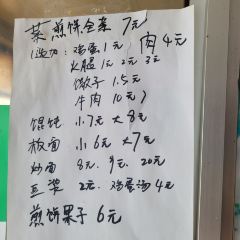 菜煎饼全套 7元
(选加: 鸡蛋1元 肉4元
火腿 1元 2元 3元
馓子 1.5元
牛肉 10元)
馄饨 小7元 大8元
板面 小6元 大7元
炒面 8元. 9元. 20元
豆浆 2元. 鸡蛋汤 4元
煎饼果子 6元